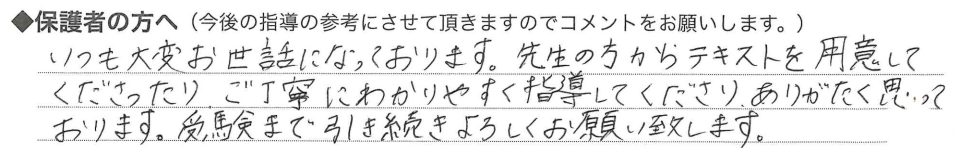 ◆保護者の方へ（今後の指導の参考にさせて頂きますのでコメントをお願いします。）
いつも大変お世話になっております。先生の方からテキストを用意して
くださったり ご丁寧にわかりやすく指導してくださり、ありがたく思って
おります。受験まで引き続きよろしくお願い致します。